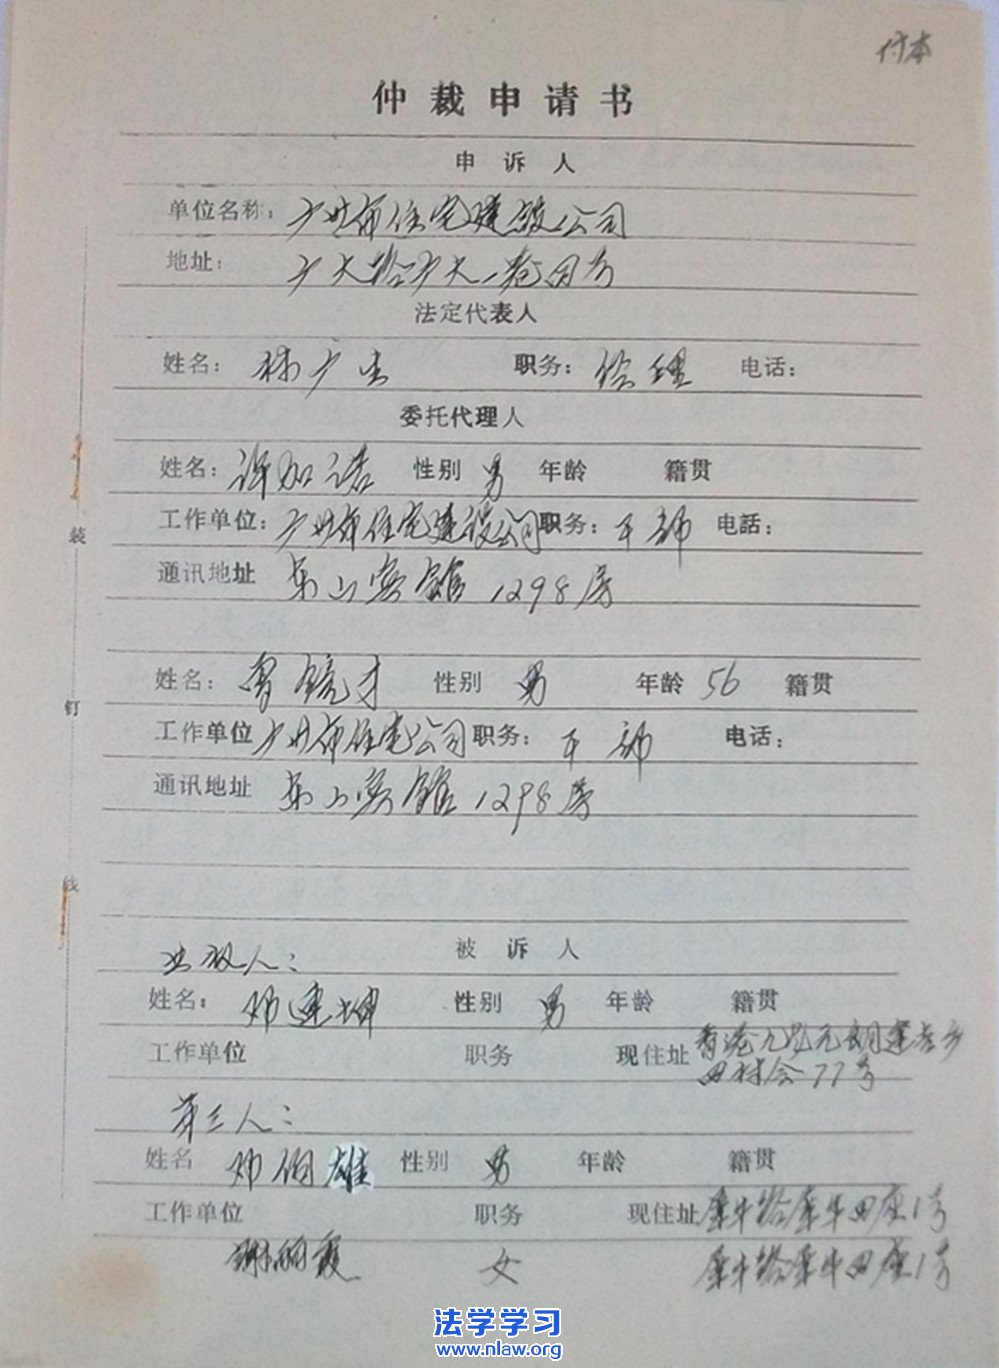 付本
仲裁申请书
申诉人
单位名称：广州市住宅建设公司
地址：广大路广大一巷四号
法定代表人
姓名：林广生 职务：经理 电话：
委托代理人
姓名：许加诺 性别 男 年龄 籍贯
工作单位：广州市住宅建设公司 职务：干部 电話：
装
通讯地址 东山宾馆1298房
姓名：曾镜才 性别 男 年龄 56 籍贯
钉
工作单位 广州市住宅公司 职务：干部 电话：
通讯地址 东山宾馆1298房
线
被诉人
姓名：邓建坤 性别 男 年龄 籍贯
工作单位 职务 现住址 香港九龙元朗
77号
第三人：
姓名 邓伯雄 性别 男 年龄 籍贯
工作单位 职务 现住址 犀牛路犀牛四座1号
谢丽霞 女 犀牛路犀牛四座1号
法学学习
www.nlaw.org